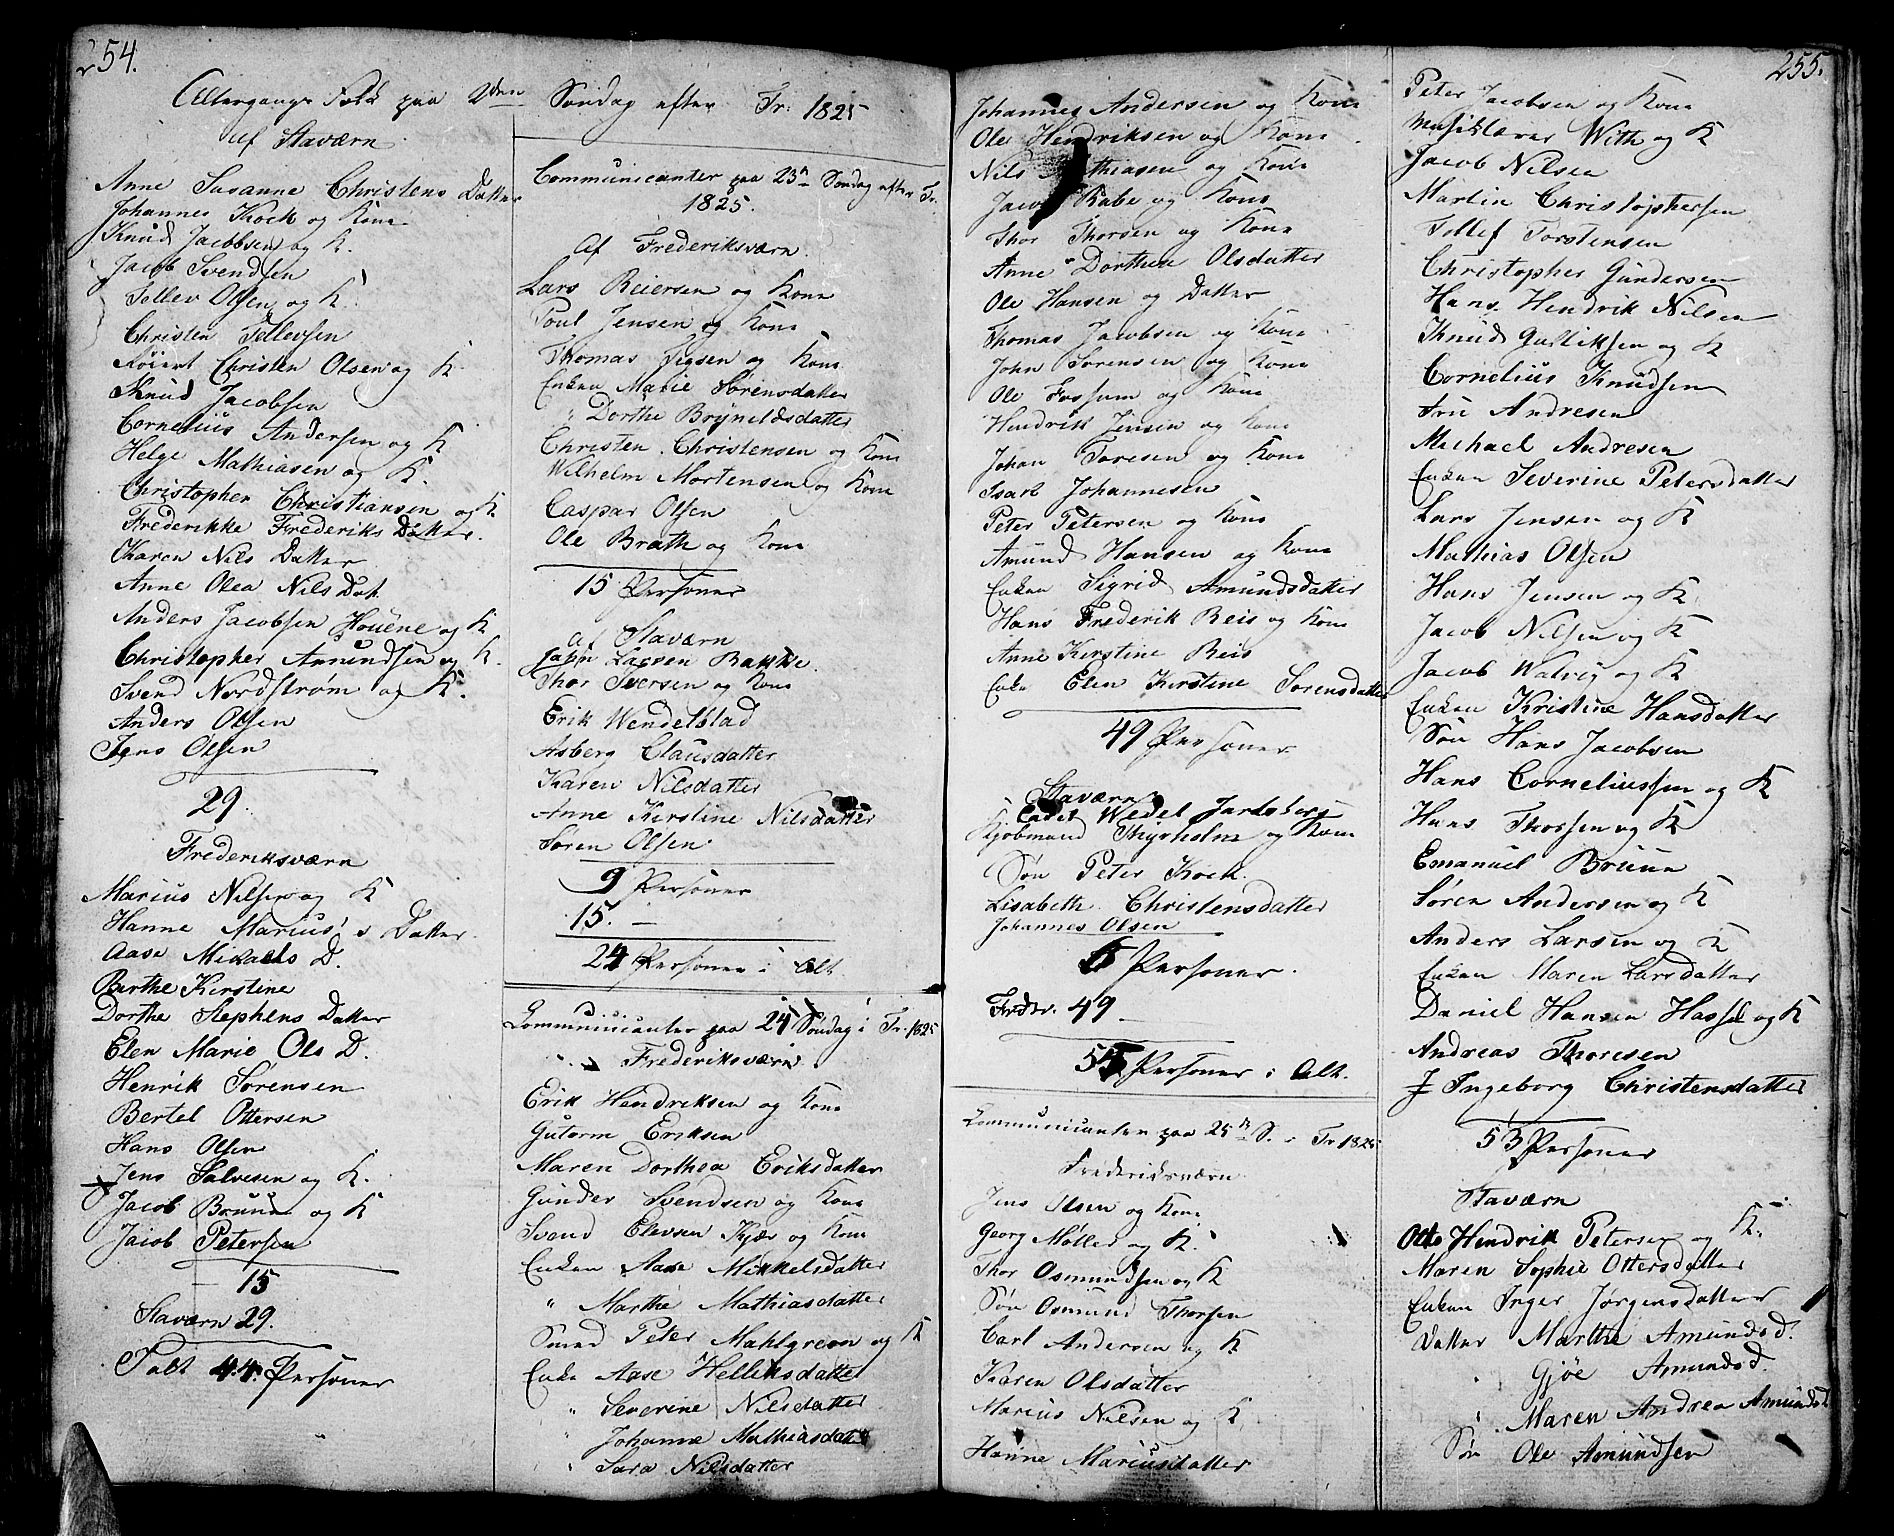 254.
Altergangs Folk paa 2den Søndag efter Tr: 1825
af Staværn
Anne Susanne Christens Datter
Johannes Kock og Kone
Knud Jacobsen og K.
Jacob Svendsen
Tellev Olsen og K.
Christen Tellevsen
Christen Olsen og K
Knud Jacobsen
Cornelius Andersen og K
Helge Mathiasen og K.
Christopher Christiansen og K
Frederikke Frederiks Datter.
Karen Nils Datter
Anne Olea Nils Dat
Anders Jacobsen Houene og K
Christopher Amundsen og K.
Svend Nordstrøm og K.
Anders Olsen
Jens Olsen
29.
Frederiksværn
Marius Nilsen og K
Hanne Marius's Datter.
Aase Mikaels D.
Berthe Kirstine
Dorthe Stephens Datter
Elen Marie Ols D.
Henrik Sørensen
Bertel Ottersen
Hans Olsen
Jens Salvesen og K.
Jacob Bruun og K
Jacob Petersen
15
Staværn 29.
Talt 44. Personer
Communicanter paa 23n Søndag efter Tr.
1825.
af Frederiksværn.
Lars Reiersen og Kone
Poul Jensen og Kone
Thomas og Kone
Enken Marie Sørensdatter
" Dorthe Brynildsdatter
Christen Christensen og Kone
Wilhelm Mortensen og Kone
Caspar Olsen
Ole Brath og Kone
15 Personer
af Staværn
Larsen Bakke.
Thor Iversen og Kone
Erik Wendelblad
Asberg Clausdatter
Karen Nilsdatter
Anne Kirstine Nilsdatter
Søren Olsen
9 Personer
15. —
24 Personer i Alt.
Communicanter paa 24 Søndag i Tr. 1825
Frederiksværn
Erik Hendriksen og Kone
Gutorm Eriksen
Maren Dorthea Eriksdatter
Gunder Svendsen og Kone
Svend Elevsen Kjær og Kone
Enken Aase Mikkelsdatter
" Marthe Mathiasdatter
Smed Peter Mahlgreen og K
Enke Aase Helliksdatter
" Severine Nilsdatter
" Johanne Mathiasdatter
" Sara Nilsdatter
Johannes Andersen og Kone
Ole Hendriksen og Kone
Nils Mathiasen og Kone
Jacob Rabe og Kone
Thor Thorsen og Kone
Anne Dorthea Olsdatter
Ole Hansen og Datter
Thomas Jacobsen og Kone
John Sørensen og Kone
Ole Fossum og Kone
Hendrik Jensen og Kone
Johan Toresen og Kone
Isak Johannesen
Peter Petersen og Kone
Amund Hansen og Kone
Enken Sigrid Amundsdatter
Hans Frederik Reis og Kone
Anne Kirstine Reis
Enke Elen Kirstine Sørensdatter
49 Personer
Staværn
Cadet Wedel Jarlsberg
Kjøbmand Thyrholm og Kone
Søn Peter Kock.
Lisabeth Christensdatter
Johannes Olsen
6 Personer.
Fredr. 49
55 Personer i Alt.
Communicanter paa 25n S. i Tr 1825
Frederiksværn
Jens Olsen og Kone
Georg Møller og K.
Thor Osmundsen og K
Søn Osmund Thorsen
Carl Andersen og K
Karen Olsdatter
Marius Nilsen og K
Hanne Mariusdatter
255.
Peter Jacobsen og Kone
With og K
Jacob Nilsen
Martin Christophersen
Tellef Torstensen
Christopher Gundersen
Hans Hendrik Nilsen
Knud Gulliksen og K
Cornelius Knudsen
Fru Andresen
Michael Andresen
Enken Severine Petersdatter
Lars Jensen og K
Mathias Olsen
Hans Jensen og K
Jacob Nilsen og K
Jacob Walvig og K
Enken Kristine Hansdatter
Søn Hans Jacobsen
Hans Corneliussen og K
Hans Thorsen og K
Emanuel Bruun
Søren Andersen og K
Anders Larsen og K
Enken Maren Larsdatter
Daniel Hansen Hassel og K
Andreas Thoresen
J Ingeborg Christensdatter
53 Personer
Staværn
Otto Hendrik Petersen og K.
Maren Sophie Ottersdatter
Enken Inger Jørgensdatter
Datter Marthe Amundsd.
Gjøe Amundsd.
Maren Andrea Amundsd
Søn Ole Amundsen